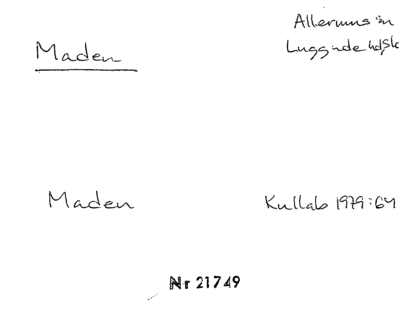 Allerums sn
Maden
Luggude hd, Sk
Maden
Kullab 1979:64
Nr 21749